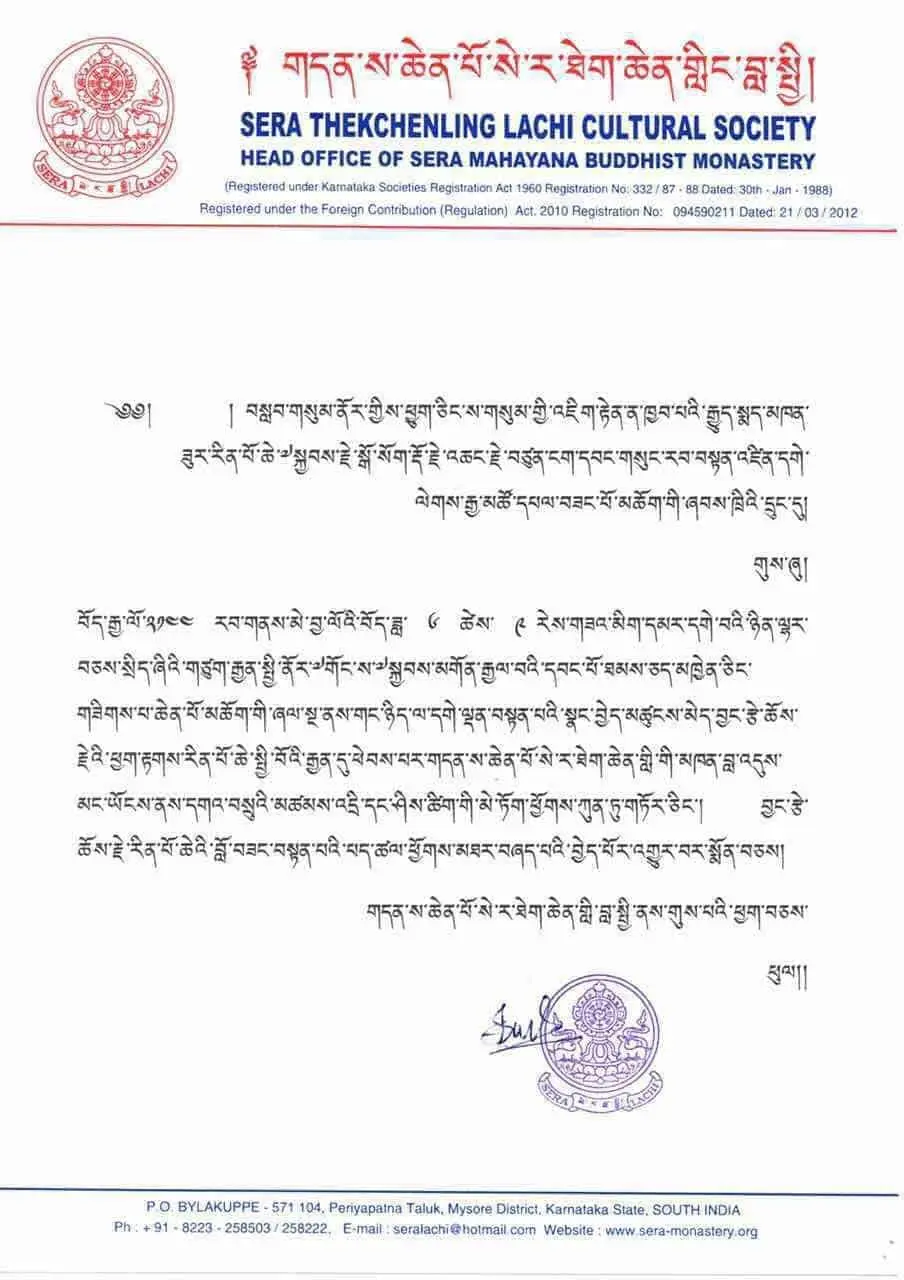 ༄ གདན་ས་ཆེན་པོ་སེ་ར་ཐེག་ཆེན་གླིང་བླ་སྤྱི།
SERA THEKCHENLING LACHI CULTURAL SOCIETY
HEAD OFFICE OF SERA MAHAYANA BUDDHIST MONASTERY
(Registered under Karnataka Societies Registration Act 1960 Registration No: 332 / 87 - 88 Dated: 30th - Jan - 1988)
Registered under the Foreign Contribution (Regulation) Act. 2010 Registration No: 094590211 Dated: 21 / 03 / 2012
SERA LACHI
༄༅། །བསླབ་གསུམ་ནོར་གྱིས་ཕྱུག་ཅིང་ས་གསུམ་གྱི་འཇིག་རྟེན་ན་ཁྱབ་པའི་རྒྱུད་སྨད་མཁན་
ཟུར་རིན་པོ་ཆེ་༧སྐྱབས་རྗེ་སྒོ་སོག་རྡོ་རྗེ་འཆང་རྗེ་བཙུན་ངག་དབང་གསུང་རབ་བསྟན་འཛིན་དགེ་
ལེགས་རྒྱ་མཚོ་དཔལ་བཟང་པོ་མཆོག་གི་ཞབས་ཁྲིའི་དྲུང་དུ།
གུས་ཞུ།
བོད་རྒྱ་ལོ་༢༡༤༤ རབ་གནས་མེ་བྱ་ལོའི་བོད་ཟླ་ ༦ ཚེས་ ༩ རེས་གཟའ་མིག་དམར་དགེ་བའི་ཉིན་ལྷར་
བཅས་སྲིད་ཞིའི་གཙུག་རྒྱན་སྤྱི་ནོར་༧གོང་ས་༧སྐྱབས་མགོན་རྒྱལ་བའི་དབང་པོ་ཐམས་ཅད་མཁྱེན་ཅིང་
གཟིགས་པ་ཆེན་པོ་མཆོག་གི་ཞལ་སྔ་ནས་གང་ཉིད་ལ་དགེ་ལྡན་བསྟན་པའི་སྣང་བྱེད་མཚུངས་མེད་བྱང་རྩེ་ཆོས་
རྗེའི་ཕྱག་རྟགས་རིན་པོ་ཆེ་སྤྱི་བོའི་རྒྱན་དུ་ཕེབས་པར་གདན་ས་ཆེན་པོ་སེ་ར་ཐེག་ཆེན་གླི་གི་མཁན་བླ་འདུས་
མང་ཡོངས་ནས་དགའ་བསུའི་མཚམས་འདྲི་དང་ཤིས་ཚིག་གི་མེ་ཏོག་ཕྱོགས་ཀུན་ཏུ་གཏོར་ཅིང་། བྱང་རྩེ་
ཆོས་རྗེ་རིན་པོ་ཆེའི་བློ་བཟང་བསྟན་པའི་པད་ཚལ་ཕྱོགས་མཐར་བཞད་པའི་བྱེད་པོར་འགྱུར་བར་སྨོན་བཅས།
གདན་ས་ཆེན་པོ་སེ་ར་ཐེག་ཆེན་གླི་བླ་སྤྱི་ནས་གུས་པའི་ཕྱག་བཅས་
ཕུལ།།
SERA LACHI
P.O. BYLAKUPPE - 571 104, Periyapatna Taluk, Mysore District, Karnataka State, SOUTH INDIA
Ph : + 91 - 8223 - 258503 / 258222, E-mail : seralachi@hotmail.com Website : www.sera-monastery.org